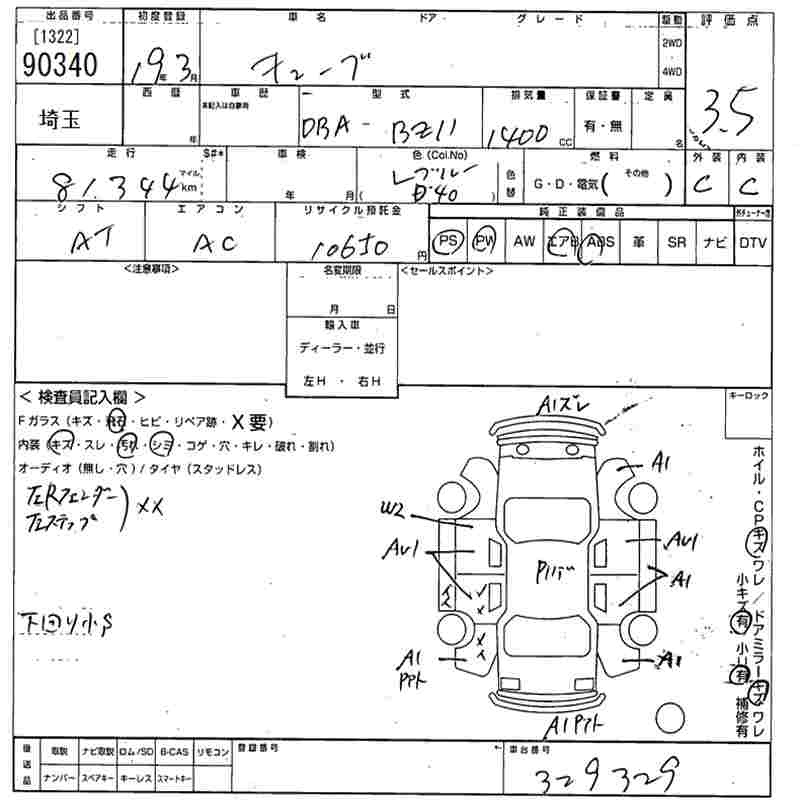 出品番号 初度登録 車名 ドア グレード 駆動 評価点
[1322]
90340 19年3月 キューブ 2WD 4WD 3.5
埼玉 西暦 年 車歴 未記入は自家用 型式 DBA- BZ11 排気量 1400 CC 保証書 有・無 定員 名
走行 S#* 車検 色(Col.No) 燃料 外装 内装
81,344 マイル km 年 月 ( B40 ) 色替 G・D・電気( その他 ) C C
シフト エアコン リサイクル預託金 純正装備品
AT AC 10650 円 PS PW AW エアB ABS 革 SR ナビ DTV
<注意事項> 名変期限 <セールスポイント>
月 日
輸入車
ディーラー・並行
左H ・ 右H
<検査員記入欄> キーロック
Fガラス(キズ・飛石・ヒビ・リペア跡・X要)
内装(キズ・スレ・汚れ・シミ・コゲ・穴・キレ・破れ・割れ)
オーディオ(無し・穴)/タイヤ(スタッドレス)
左Rフェンダー
左ステップ ) XX
下回り小S
A1ズレ
A1
W2
AU1 AU1
A1
A1 A1
A1
ホイル・CPキズワレ/ドアミラーキズワレ
小キズ有 小U有 補修有
後送品 取説 ナビ取説 ロム/SD B-CAS リモコン 登録番号 車台番号
ナンバー スペアキー キーレス スマートキー 329329